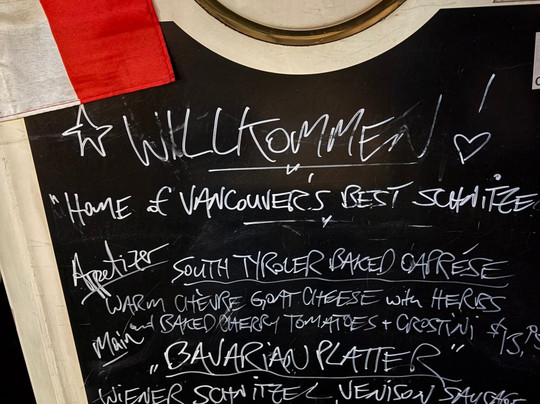 ☆ WILLKOMMEN! ♡
"Home of VANCOUVER'S BEST SCHNITZE
Appetizer SOUTH TYROLER BAKED CAPRÉSE
WARM CHÈVRE GOAT CHEESE with HERBS
and BAKED CHERRY TOMATOES + CROSTINI
Main „BAVARIAN PLATTER"
WIENER SCHNITZEL, VENISON SAUSAGE